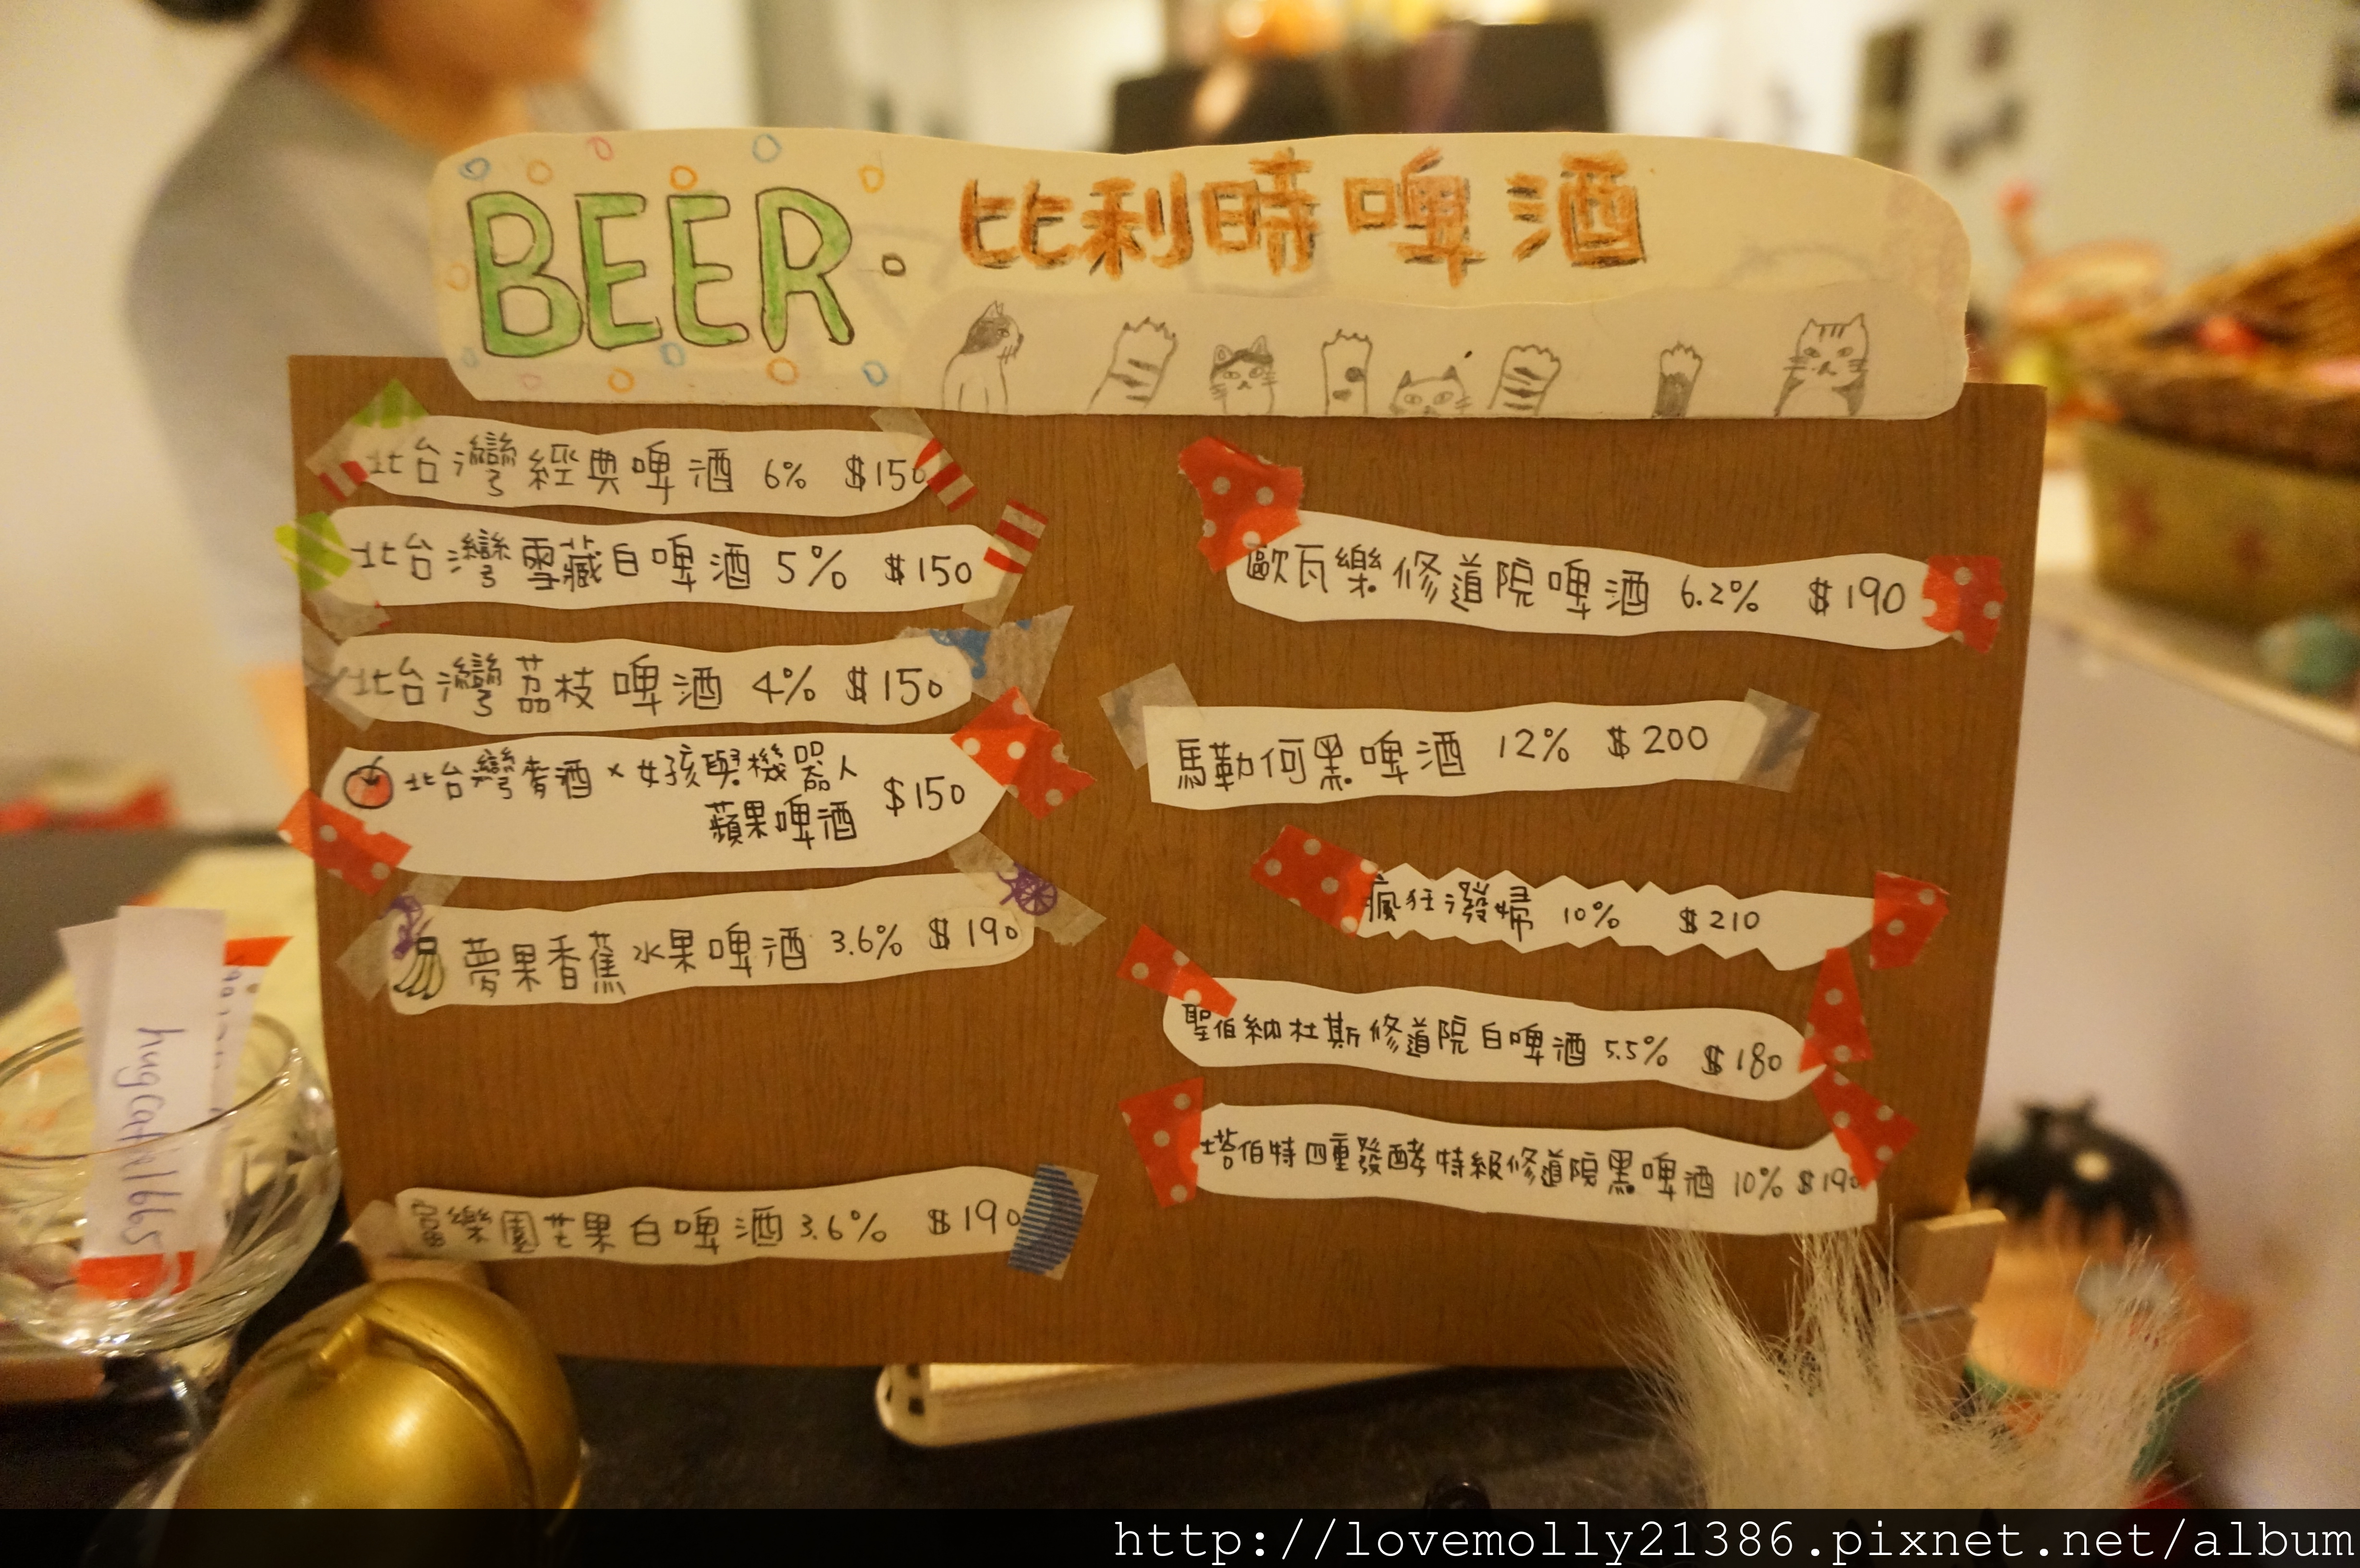 BEER. 比利時啤酒
北台灣經典啤酒 6% $150
北台灣雪藏白啤酒 5% $150
北台灣荔枝啤酒 4% $150
北台灣麥酒 × 女孩與機器人
蘋果啤酒 $150
夢果香蕉水果啤酒 3.6% $190
富樂園芒果白啤酒 3.6% $190
歐瓦樂修道院啤酒 6.2% $190
馬勒何黑啤酒 12% $200
瘋狂潑婦 10% $210
聖伯納杜斯修道院白啤酒 5.5% $180
塔伯特四重發酵特級修道院黑啤酒 10% $190
http://lovemolly21386.pixnet.net/album